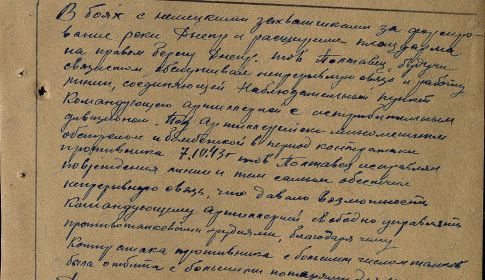 В боях с немецкими захватчиками за форсиро-
вание реки Днепр и расширение плацдарма
на правом берегу Днепр. тов Полчавец, будучи
связистом, обслуживал непрерывную связь и работу
линии, соединяющей Наблюдательный пункт
Командующего артиллерией с истребительным
дивизионом. Под Артиллерийско-минометным
обстрелом и бомбежкой в период контратаки
противника 7.10.43г тов Полчавец исправлял
повреждения линии и тем самым обеспечил
непрерывную связь, что давало возможность
Командующему Артиллерией свободно управлять
противотанковыми орудиями, благодаря чему
Контратака противника с большим числом танков
была отбита с большими потерями для